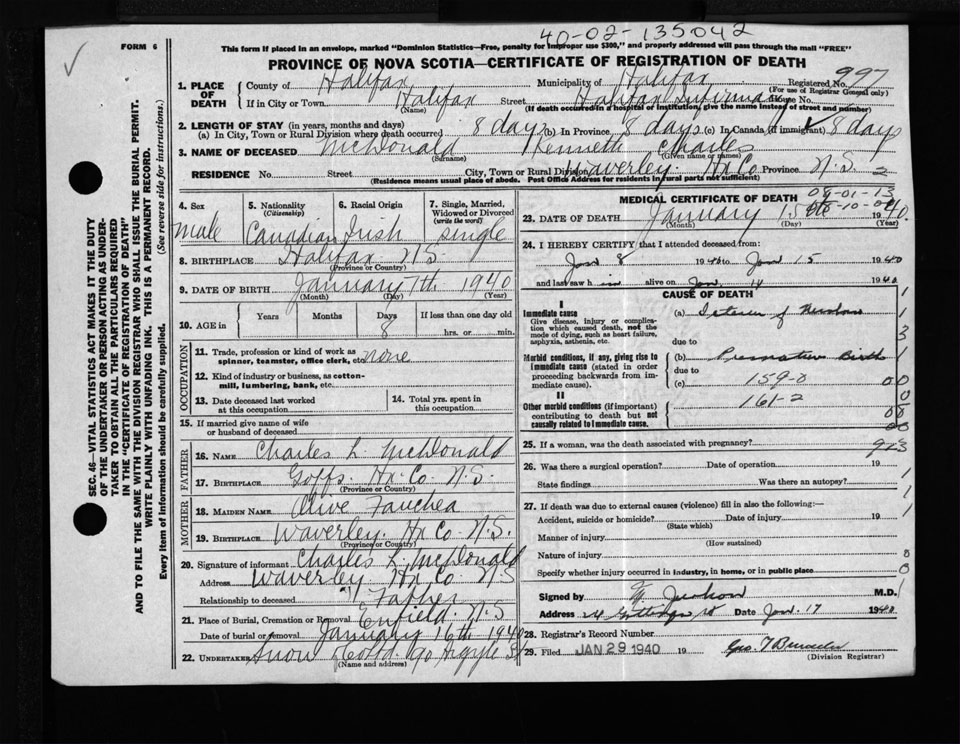 40-02-135042
FORM 6
This form if placed in an envelope, marked "Dominion Statistics—Free, penalty for improper use $300," and properly addressed will pass through the mail "FREE"
PROVINCE OF NOVA SCOTIA—CERTIFICATE OF REGISTRATION OF DEATH
1. PLACE OF DEATH County of Halifax Municipality of Halifax Registered No. 997
(For use of Registrar General only)
If in City or Town Halifax Street Halifax Infirmary House No.
(If death occurred in a hospital or institution, give the name instead of street and number)
2. LENGTH OF STAY (in years, months and days)
(a) In City, Town or Rural Division where death occurred 8 days (b) In Province 8 days (c) In Canada (if immigrant) 8 days
3. NAME OF DECEASED McDonald Kenneth Charles
(Surname) (Given name or names)
RESIDENCE No. Street City, Town or Rural Division Waverley Hx Co Province N.S.
(Residence means usual place of abode. Post Office Address for residents in rural parts not sufficient)
4. Sex male
5. Nationality (Citizenship) Canadian
6. Racial Origin Irish
7. Single, Married, Widowed or Divorced (write the word) single
8. BIRTHPLACE Halifax N.S.
(Province or Country)
9. DATE OF BIRTH January 7th 1940
(Month) (Day) (Year)
10. AGE in Years Months Days 8 If less than one day old hrs. or min.
OCCUPATION
11. Trade, profession or kind of work as spinner, teamster, office clerk, etc. none
12. Kind of industry or business, as cotton-mill, lumbering, bank, etc.
13. Date deceased last worked at this occupation
14. Total yrs. spent in this occupation
15. If married give name of wife or husband of deceased
FATHER
16. NAME Charles L. McDonald
17. BIRTHPLACE Goffs Hx Co. N.S.
(Province or Country)
MOTHER
18. MAIDEN NAME Olive
19. BIRTHPLACE Waverley Hx Co N.S.
(Province or Country)
20. Signature of informant Charles L. McDonald
Address Waverley Hx Co N.S
Relationship to deceased Father
21. Place of Burial, Cremation or Removal Enfield N.S
Date of burial or removal January 16th 1940
22. UNDERTAKER Snow & Co Ltd. 90 Argyle St
(Name and address)
MEDICAL CERTIFICATE OF DEATH
08-01-13
23. DATE OF DEATH January 15 1940
(Month) (Day) (Year)
24. I HEREBY CERTIFY that I attended deceased from:
Jan 8 1940 to Jan 15 1940
and last saw h im alive on Jan. 14 1940
CAUSE OF DEATH
I
Immediate cause
Give disease, injury or complication which caused death, not the mode of dying, such as heart failure, asphyxia, asthenia, etc.
(a) of
due to
Morbid conditions, if any, giving rise to immediate cause (stated in order proceeding backwards from immediate cause).
(b) Premature Birth
due to
(c) 159-0
II
Other morbid conditions (if important) contributing to death but not causally related to immediate cause.
161-2
25. If a woman, was the death associated with pregnancy?
26. Was there a surgical operation? Date of operation 19
State findings Was there an autopsy?
27. If death was due to external causes (violence) fill in also the following:—
Accident, suicide or homicide? Date of injury 19
(State which)
Manner of injury
(How sustained)
Nature of injury
Specify whether injury occurred in industry, in home, or in public place
Signed by M.D.
Address Date Jan. 17 1940
28. Registrar's Record Number
29. Filed JAN 29 1940 19 Geo. T
(Division Registrar)
SEC. 46—VITAL STATISTICS ACT MAKES IT THE DUTY
OF THE UNDERTAKER OR PERSON ACTING AS UNDER-
TAKER TO OBTAIN ALL THE PARTICULARS REQUIRED
IN THE "CERTIFICATE OF REGISTRATION OF DEATH"
AND TO FILE THE SAME WITH THE DIVISION REGISTRAR WHO SHALL ISSUE THE BURIAL PERMIT.
WRITE PLAINLY WITH UNFADING INK. THIS IS A PERMANENT RECORD.
Every item of information should be carefully supplied. (See reverse side for instructions.)